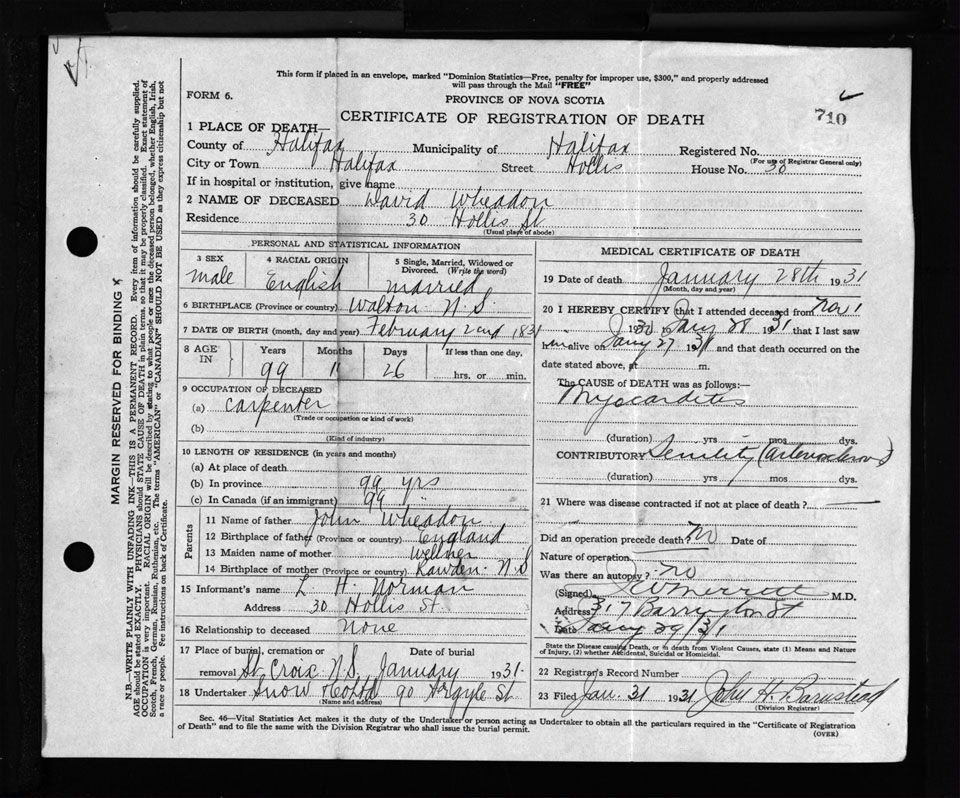 This form if placed in an envelope, marked "Dominion Statistics—Free, penalty for improper use, $300," and properly addressed
will pass through the Mail "FREE"
FORM 6.
PROVINCE OF NOVA SCOTIA
CERTIFICATE OF REGISTRATION OF DEATH
710
1 PLACE OF DEATH—
County of Halifax Municipality of Halifax Registered No.
(For use of Registrar General only)
City or Town Halifax Street Hollis House No. 30
If in hospital or institution, give name
2 NAME OF DECEASED David Wheadon
Residence 30 Hollis St
(Usual place of abode)
PERSONAL AND STATISTICAL INFORMATION
3 SEX 4 RACIAL ORIGIN 5 Single, Married, Widowed or Divorced. (Write the word)
male English married
6 BIRTHPLACE (Province or country) Walton N.S.
7 DATE OF BIRTH (month, day and year) February 2nd 1831
8 AGE IN Years Months Days If less than one day,
99 11 26 hrs. or min.
9 OCCUPATION OF DECEASED
(a) carpenter
(Trade or occupation or kind of work)
(b)
(Kind of industry)
10 LENGTH OF RESIDENCE (in years and months)
(a) At place of death
(b) In province 99 yrs
(c) In Canada (if an immigrant) 99 "
Parents
11 Name of father John Wheadon
12 Birthplace of father (Province or country) England
13 Maiden name of mother Wellner
14 Birthplace of mother (Province or country) Rawden. N.S
15 Informant's name L H. Norman
Address 30 Hollis St.
16 Relationship to deceased None
17 Place of burial, cremation or removal Date of burial
St. Croix N.S. January 1931.
18 Undertaker Snow & Co Ltd 90 Argyle St.
(Name and address)
MEDICAL CERTIFICATE OF DEATH
19 Date of death January 28th 1931
(Month, day and year)
20 I HEREBY CERTIFY that I attended deceased from Nov 1
1930 to Jany 28 1931 that I last saw
him alive on Jany 27 1931 and that death occurred on the
date stated above, at m.
The CAUSE OF DEATH was as follows:—
Myocarditis
(duration) yrs mos dys.
CONTRIBUTORY Senility
(duration) yrs mos dys.
21 Where was disease contracted if not at place of death?
Did an operation precede death? No Date of
Nature of operation
Was there an autopsy? no
(Signed) M.D.
Address 317 Barrington St
Date Jany 29/31
State the Disease causing Death, or in death from Violent Causes, state (1) Means and Nature
of Injury, (2) whether Accidental, Suicidal or Homicidal.
22 Registrar's Record Number
23 Filed Jan. 31 1931 John H. Barnstead
(Division Registrar)
Sec. 46—Vital Statistics Act makes it the duty of the Undertaker or person acting as Undertaker to obtain all the particulars required in the "Certificate of Registration
of Death" and to file the same with the Division Registrar who shall issue the burial permit.
(OVER)
MARGIN RESERVED FOR BINDING
N.B.—WRITE PLAINLY WITH UNFADING INK—THIS IS A PERMANENT RECORD. Every item of information should be carefully supplied.
AGE should be stated EXACTLY. PHYSICIANS should STATE CAUSE OF DEATH in plain terms, so that it may be properly classified. Exact statement of
OCCUPATION is very important. RACIAL ORIGIN will be described by stating to what people or race the deceased person belonged, whether English, Irish,
Scotch, French, German, Russian, Ruthenian, etc. The terms "AMERICAN" or "CANADIAN" SHOULD NOT BE USED as they express citizenship but not
a race or people. Fee instructions on back of Certificate.